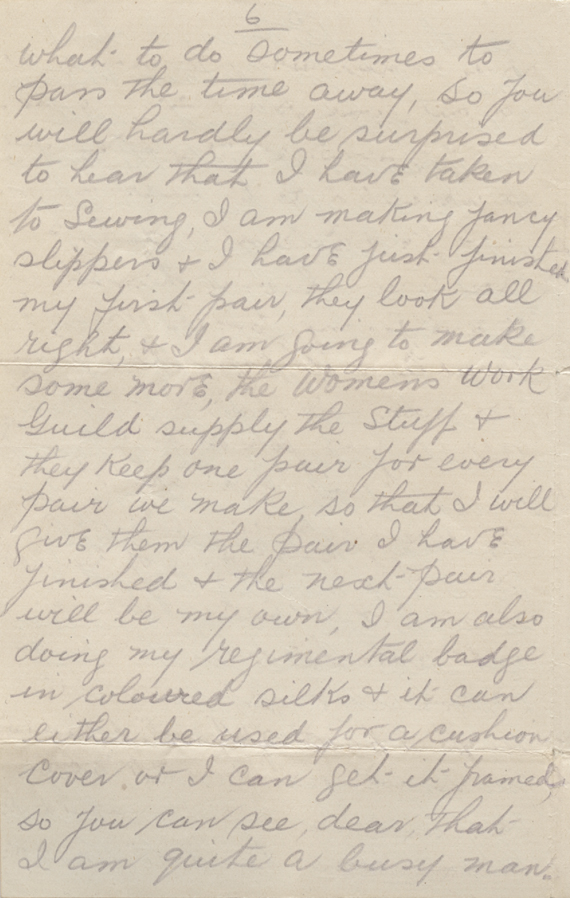 6
what to do sometimes to
pass the time away, so you
will hardly be surprised
to hear that I have taken
to Sewing, I am making fancy
slippers & I have just finished
my first pair, they look all
right, & I am going to make
some more, the Womens Work
Guild supply the Stuff &
they keep one pair for every
pair we make, so that I will
give them the pair I have
finished & the next pair
will be my own, I am also
doing my regimental badge
in coloured silks & it can
either be used for a cushion
cover or I can get it framed,
so you can see, dear, that
I am quite a busy man.